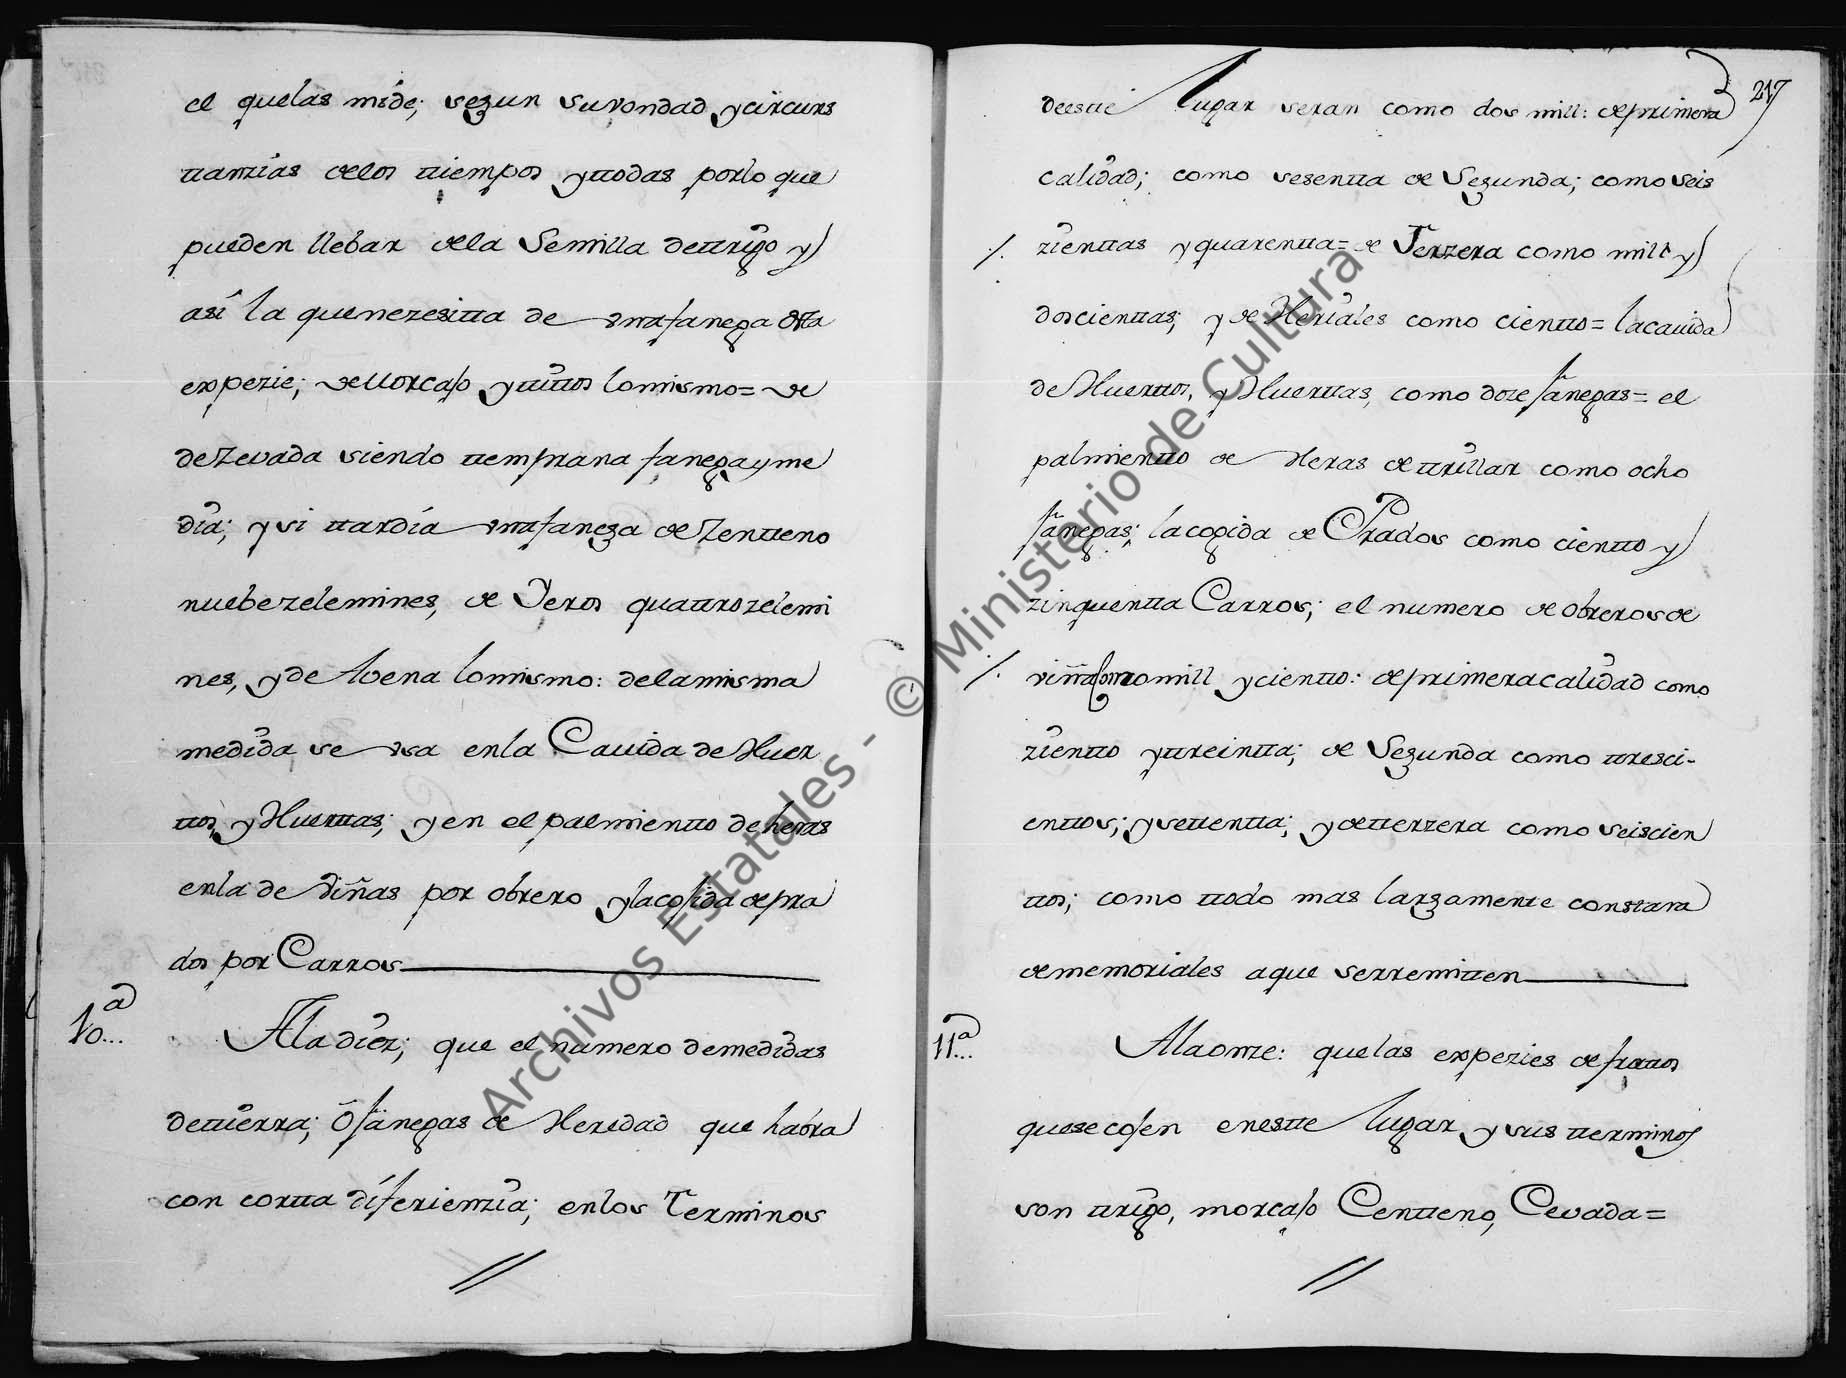 el quelas mide; segun suvondad ycircuns
ttanzias delos ttiempos yttodas porlo que
pueden llebar dela Semilla dettrigo y
asi la quenezesitta de unafanega esta
expezie; demorcajo yttittos lomismo= de
dezevada siendo ttemprana fanegayme
dia; ysi ttardía unafanega de Zentteno
nuebezelemines, de Yeros quattrozelemi
nes, yde Abena lomismo: delamisma
medida se usa enla Cavida de Huer
ttos, y Huerttas; yen el palmientto de heras
enla de viñas por obrero ylacojida depra
dos por Carros
10.ª... Ala diez; que el numero demedidas
dettierra; ô fanegas de Heredad que habra
con cortta diferienzia; enlos Terminos
217
deestte Lugar seran como dos mill: deprimera
calidad; como sesentta de Segunda; como seis
zienttas yquarentta= de Terzera como mill y
doscienttas; y de Heriales como cientto= lacavida
de Huerttos, y Huerttas, como doze fanegas= el
palmientto de Heras dettrillar como ocho
fanegas; lacogida de Prados como cientto y
zinquentta Carros; el numero de obreros de
viñas como mill ycientto: deprimeracalidad como
zientto yttreintta; de Segunda como ttresci-
enttos; ysettentta; ydetterzera como seiscien
ttos; como ttodo mas largamente constara
dememoriales aque serremitten
11.ª... Alaonze: quelas expezies defruttos
quesecojen enestte Lugar ysus tterminos
son ttrigo, morcajo Centteno, Cevada=
Archivos Estatales - © Ministerio de Cultura